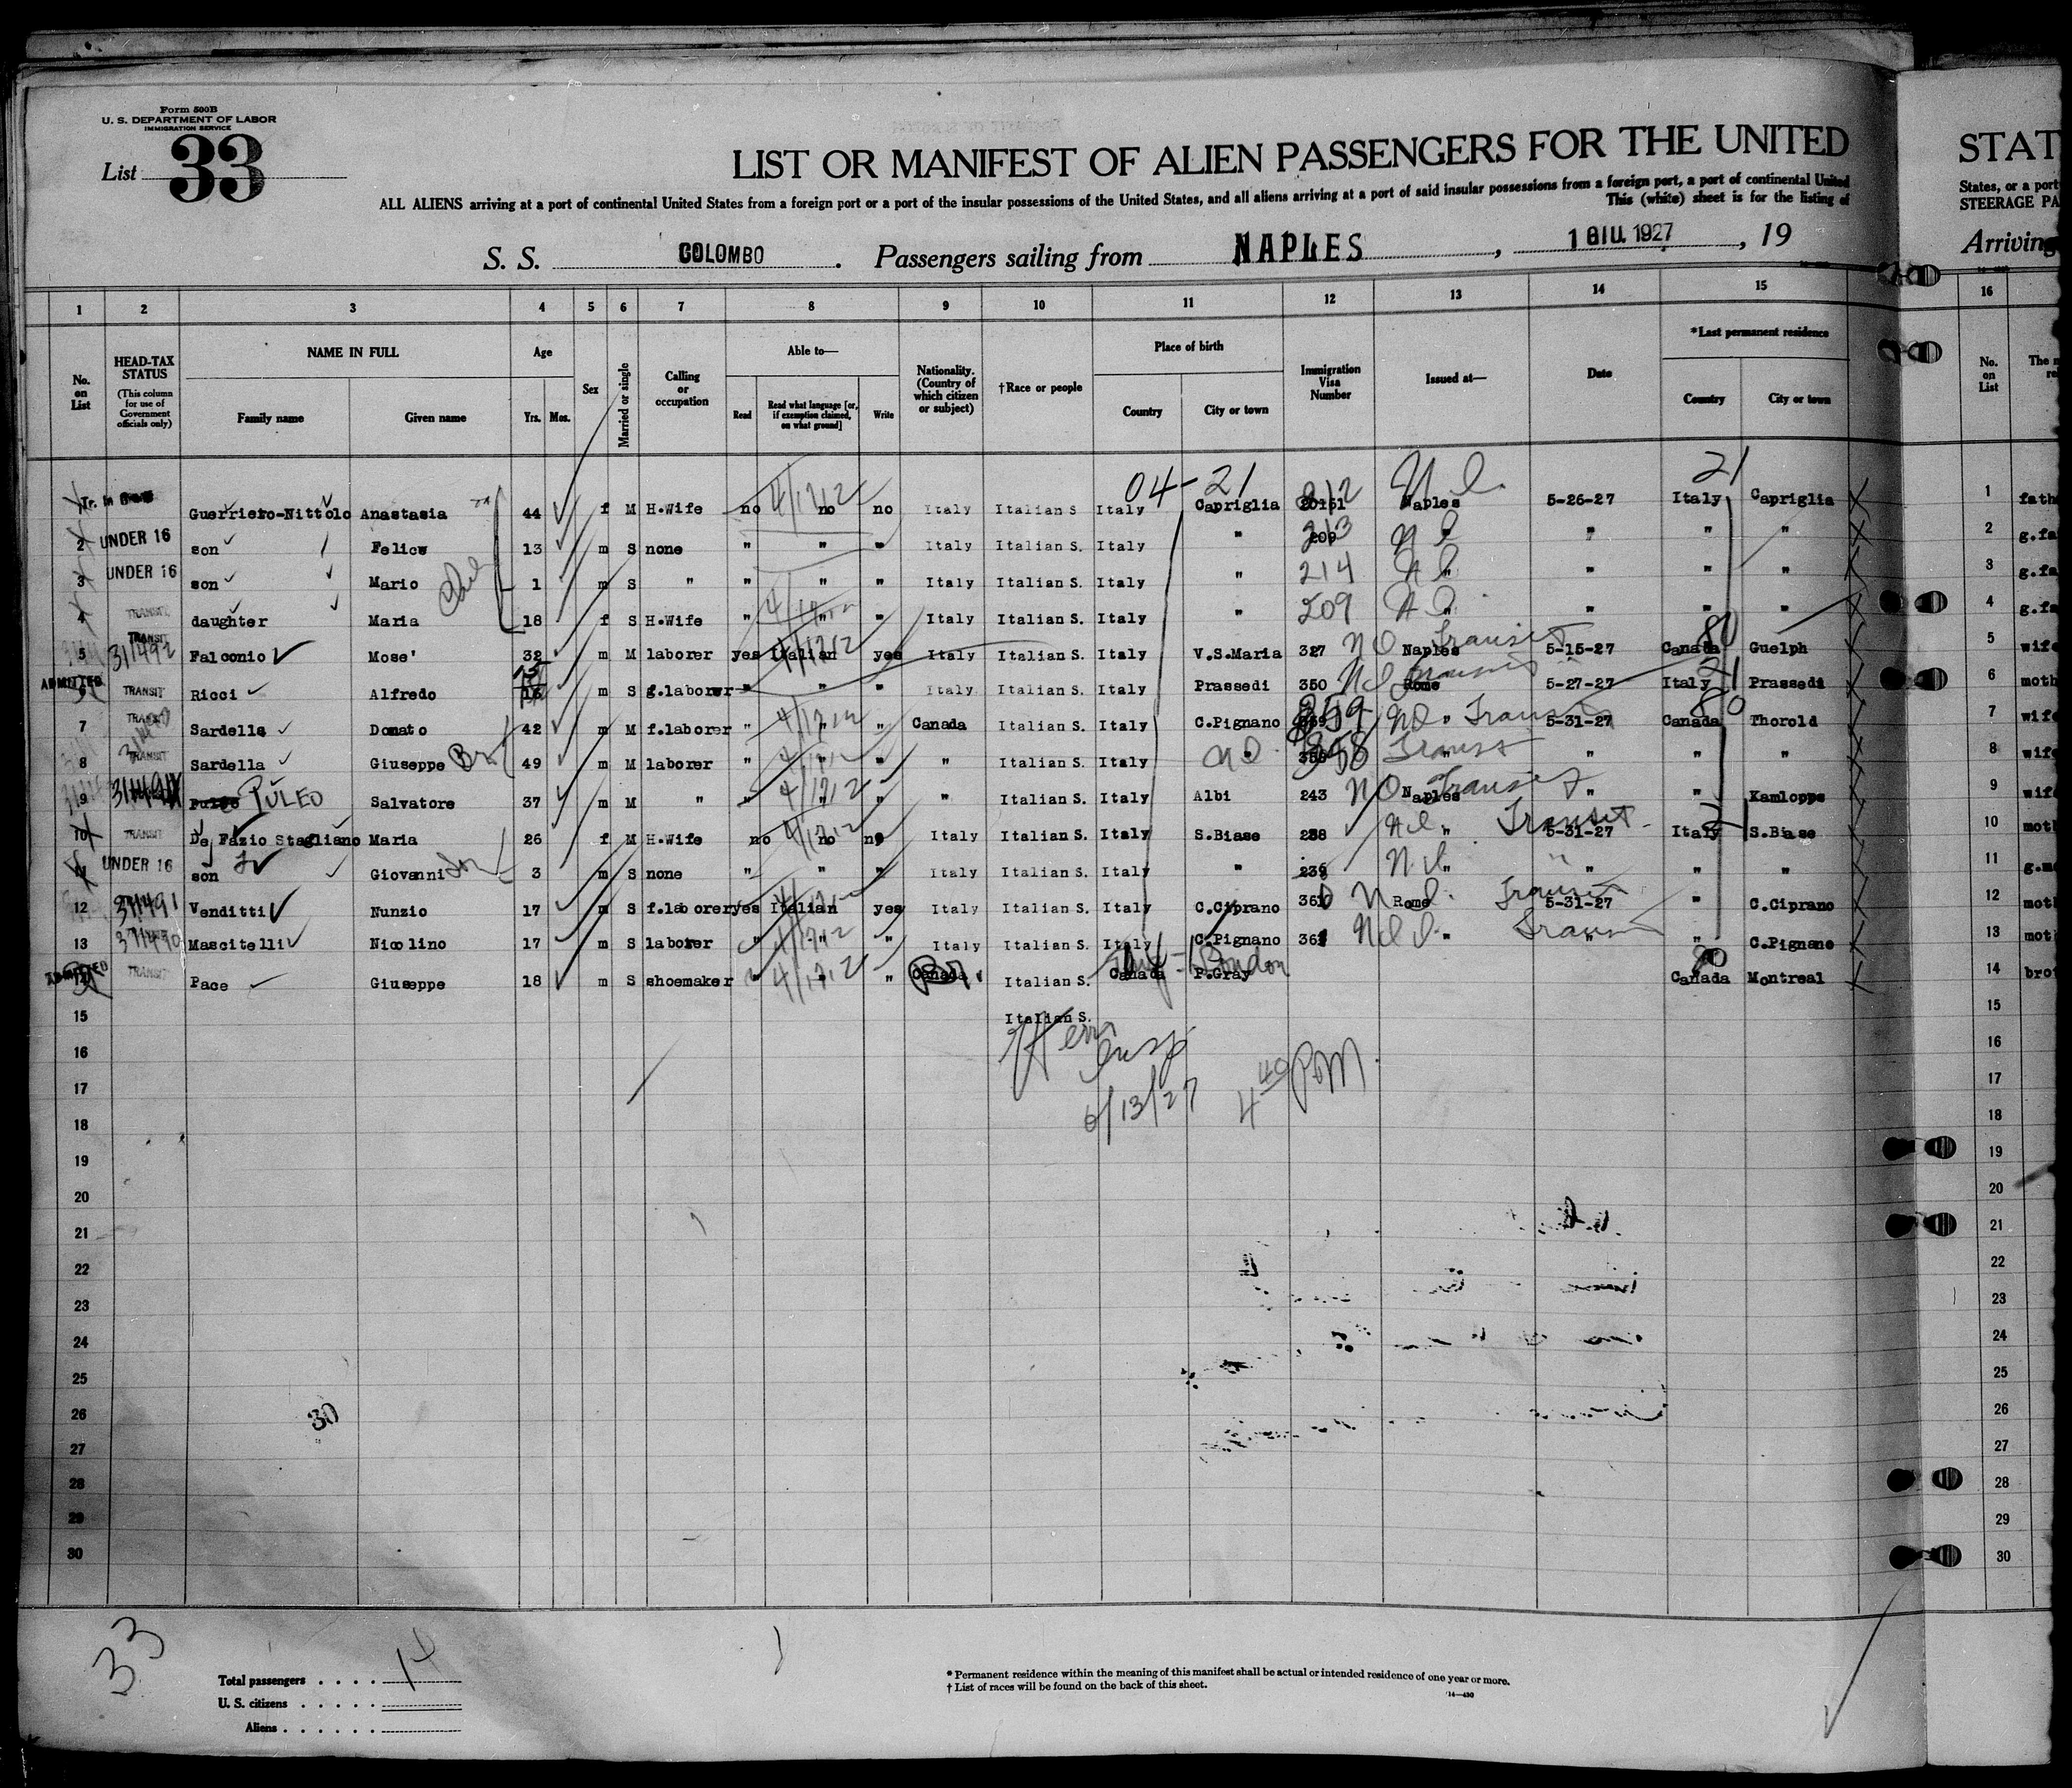 Form 500B
U. S. DEPARTMENT OF LABOR
IMMIGRATION SERVICE
List 33
LIST OR MANIFEST OF ALIEN PASSENGERS FOR THE UNITED
STAT
ALL ALIENS arriving at a port of continental United States from a foreign port or a port of the insular possessions of the United States, and all aliens arriving at a port of said insular possessions from a foreign port, a port of continental United
States, or a port
This (white) sheet is for the listing of
STEERAGE PA
S. S. COLOMBO. Passengers sailing from NAPLES, 1 GIU. 1927, 19
Arriving
1 2 3 4 5 6 7 8 9 10 11 12 13 14 15 16
No. on List
HEAD-TAX STATUS
(This column for use of Government officials only)
NAME IN FULL
Family name Given name
Age
Yrs. Mos.
Sex
Married or single
Calling or occupation
Able to—
Read
Read what language [or, if exemption claimed, on what ground]
Write
Nationality. (Country of which citizen or subject)
†Race or people
Place of birth
Country City or town
Immigration Visa Number
Issued at—
Date
*Last permanent residence
Country City or town
No. on List
04-21 21
Guerriero-Nittolo Anastasia 44 f M H.Wife no 4/17/2 no no Italy Italian S Italy Capriglia 212 Naples 5-26-27 Italy Capriglia 1 fath
2 UNDER 16 son Felice 13 m S none " " " Italy Italian S. Italy " 213 " " " " 2 g.fa
3 UNDER 16 son Mario 1 m S " " " " Italy Italian S. Italy " 214 " " " " 3 g.fa
4 TRANSIT daughter Maria 18 f S H.Wife " " " Italy Italian S. Italy " 209 " " " " 4 g.fa
5 TRANSIT 311492 Falconio Mose' 32 m M laborer yes Italian yes Italy Italian S. Italy V.S.Maria 327 Naples Transit 5-15-27 Canada 80 Guelph 5 wife
ADMITTED TRANSIT Ricci Alfredo 15 m S g.laborer " " " Italy Italian S. Italy Prassedi 350 Rome Transit 5-27-27 Italy 21 Prassedi 6 moth
7 TRANSIT Sardella Donato 42 m M f.laborer " " " Canada Italian S. Italy C.Pignano 359 " Transit 5-31-27 Canada 80 Thorold 7 wife
8 TRANSIT Sardella Giuseppe Br 49 m M laborer " " " " Italian S. Italy " 358 " Transit " " " 8 wife
9 PULEO Salvatore 37 m M " " " " " Italian S. Italy Albi 243 Naples Transit " " Kamlopps 9 wife
10 TRANSIT De Fazio Stagliano Maria 26 f M H.Wife no no no Italy Italian S. Italy S.Biase 238 " Transit 5-31-27 Italy 21 S.Biase 10 moth
11 UNDER 16 son Giovanni 3 m S none " " " Italy Italian S. Italy " 239 " " " " 11 g.mo
12 311491 Venditti Nunzio 17 m S f.laborer yes Italian yes Italy Italian S. Italy C.Ciprano 360 Rome Transit 5-31-27 " C.Ciprano 12 moth
13 311490 Mascitelli Nicolino 17 m S laborer " " " Italy Italian S. Italy C.Pignano 361 " " " C.Pignano 13 moth
ADMITTED TRANSIT Pace Giuseppe 18 m S shoemaker " " " Canada Br. Italian S. Canada P.Gray London Canada 80 Montreal 14 brot
15 Italian S. 15
16 Insp 16
17 6/13/27 4 40 PM. 17
18 18
19 19
20 20
21 21
22 22
23 23
24 24
25 25
26 30 26
27 27
28 28
29 29
30 30
33
Total passengers . . . . 14
U. S. citizens . . . . .
Aliens . . . . . .
* Permanent residence within the meaning of this manifest shall be actual or intended residence of one year or more.
† List of races will be found on the back of this sheet.
14—430